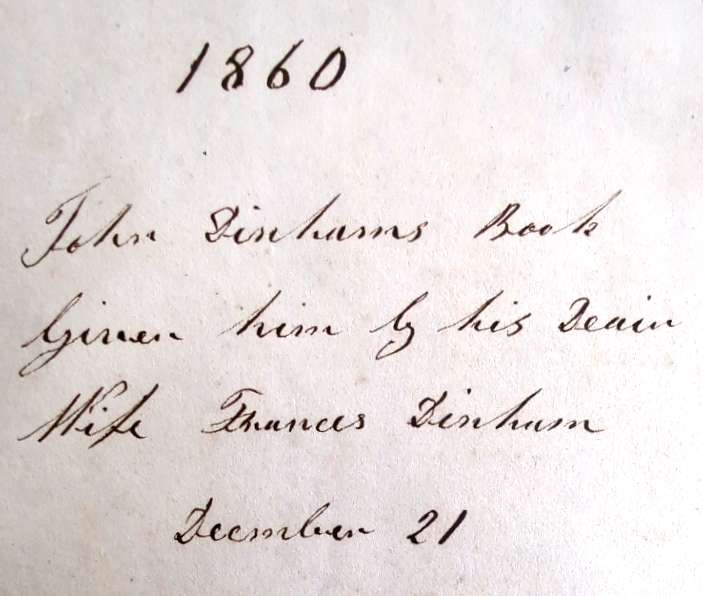 1860
John Dinhams Book
Given him by his Deair
Wife Frances Dinham
December 21